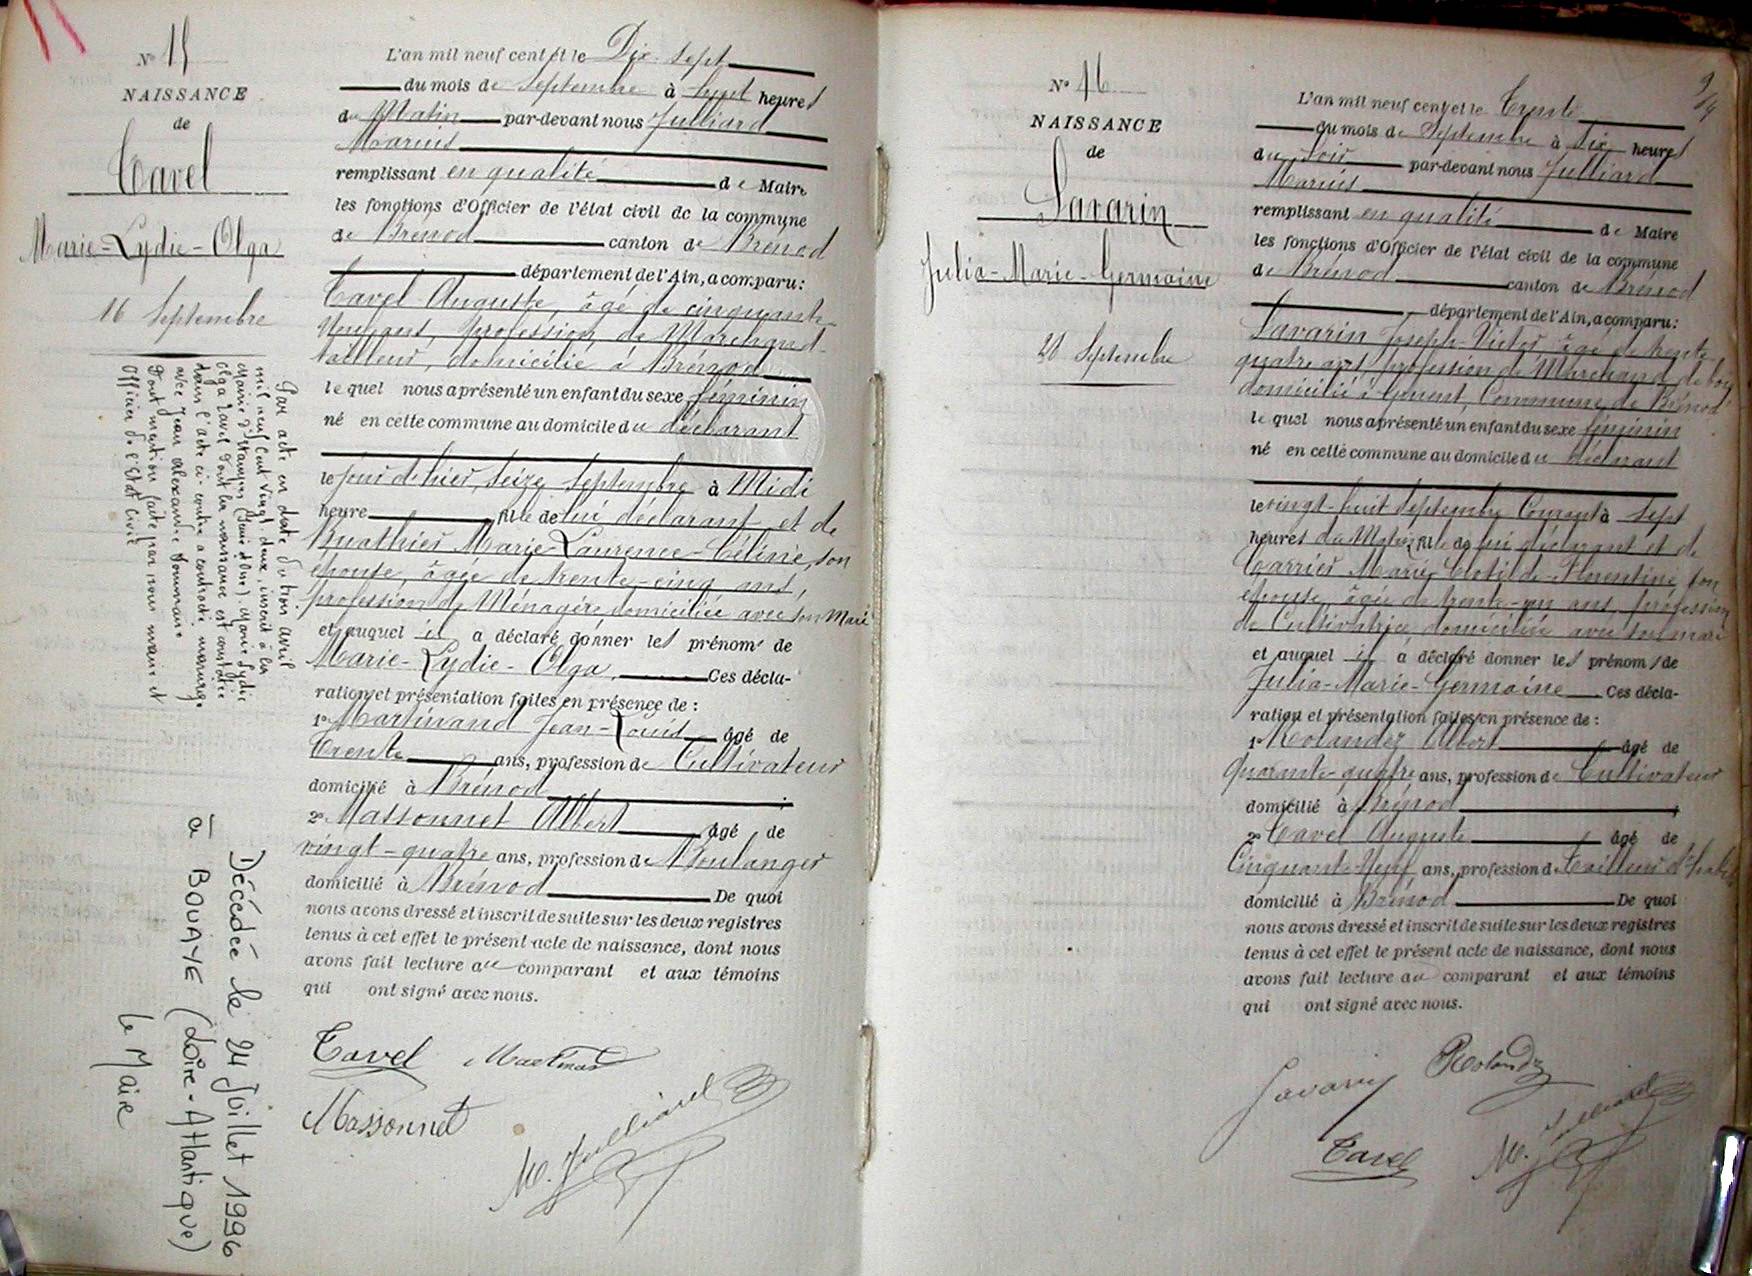 N° 15
NAISSANCE
de
Tavel
Marie-Lydie-Olga
16 Septembre
Par acte en date du trois avril
mil neuf cent vingt-deux, inscrit à la
mairie d'Etampes (Seine & Oise), Marie Lydie
Olga Tavel dont la naissance est constatée
dans l'acte ci-contre a contracté mariage
avec Jean Alexandre
Dont mention faite par nous maire et
Officier de l'Etat Civil
Décédée le 24 Juillet 1996
à BOUAYE (Loire-Atlantique)
Le Maire
L'an mil neuf cent et le Dix-sept
du mois de Septembre à heures
du Matin par-devant nous Julliard
Marius
remplissant en qualité de Maire
les fonctions d'Officier de l'état civil de la commune
de Brénod canton de Brénod
département de l'Ain, a comparu:
Tavel Auguste, âgé de cinquante-
neuf ans, profession de Marchand-
tailleur, domicilié à Brénod
le quel nous a présenté un enfant du sexe féminin
né en cette commune au domicile du déclarant
le jour d'hier, seize Septembre à Midi
heure fille de lui déclarant et de
Buathier Marie-Laurence-Céline, son
épouse, âgée de trente-cinq ans,
profession de Ménagère domiciliée avec son Mari
et auquel il a déclaré donner les prénoms de
Marie-Lydie-Olga, Ces décla-
ration et présentation faites en présence de :
1° Martinand Jean-Louis âgé de
Trente ans, profession de Cultivateur
domicilié à Brénod
2° Massonnet Albert âgé de
vingt-quatre ans, profession de Boulanger
domicilié à Brénod De quoi
nous avons dressé et inscrit de suite sur les deux registres
tenus à cet effet le présent acte de naissance, dont nous
avons fait lecture au comparant et aux témoins
qui ont signé avec nous.
Tavel Martinand
Massonnet
M. Julliard
N° 16
NAISSANCE
de
Savarin
Julia-Marie-Germaine
28 Septembre
9
L'an mil neuf cent et le Trente
du mois de Septembre à Six heures
du Soir par-devant nous Julliard
Marius
remplissant en qualité de Maire
les fonctions d'Officier de l'état civil de la commune
de Brénod canton de Brénod
département de l'Ain, a comparu:
Savarin Joseph-Victor âgé de trente
quatre ans profession de Marchand de bois
domicilié à Commune de Brénod
le quel nous a présenté un enfant du sexe féminin
né en cette commune au domicile du déclarant
le vingt-huit Septembre Courant à Sept
heures du Matin fille de lui déclarant et de
Carrier Marie Clotilde-Florentine son
épouse, âgée de trente-un ans, profession
de Cultivatrice domiciliée avec son mari
et auquel il a déclaré donner les prénoms de
Julia-Marie-Germaine Ces décla-
ration et présentation faites en présence de :
1° Rolandez Albert âgé de
Quarante-quatre ans, profession de Cultivateur
domicilié à Brénod
2° Tavel Auguste âgé de
Cinquante-Neuf ans, profession de Tailleur d'habits
domicilié à Brénod De quoi
nous avons dressé et inscrit de suite sur les deux registres
tenus à cet effet le présent acte de naissance, dont nous
avons fait lecture au comparant et aux témoins
qui ont signé avec nous.
Savarin Rolandez
Tavel M. Julliard